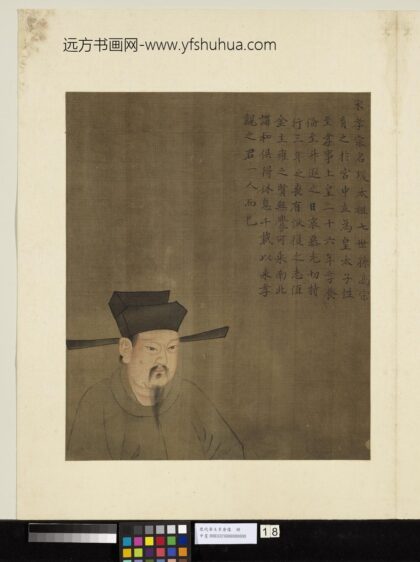 远方书画网-www.yfshuhua.com
宋孝宗名太祖七世孫高宗
育之於宮中立為皇太子性
至孝事上皇二十六年孝養
備至升遐之日哀慕尤切持
行三年之喪有恢復之志值
金主雍之賢無釁可乘南北
講和俱得休息千載以來孝
之君一人而已
歷代帝王半身像 冊
18